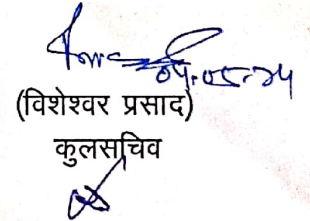 04.05.24
(विशेश्वर प्रसाद)
कुलसचिव